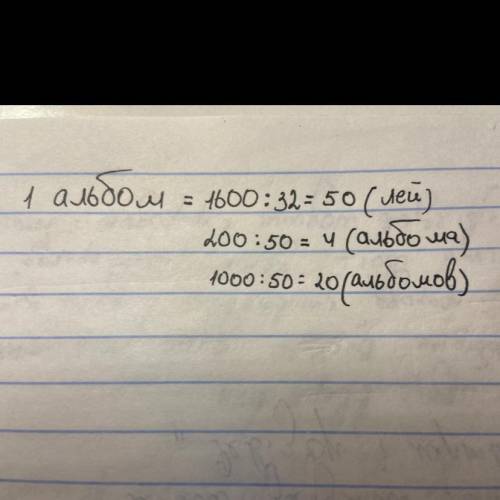 1 альбом = 1600 : 32 = 50 (лей)
200 : 50 = 4 (альбома)
1000 : 50 = 20 (альбомов)